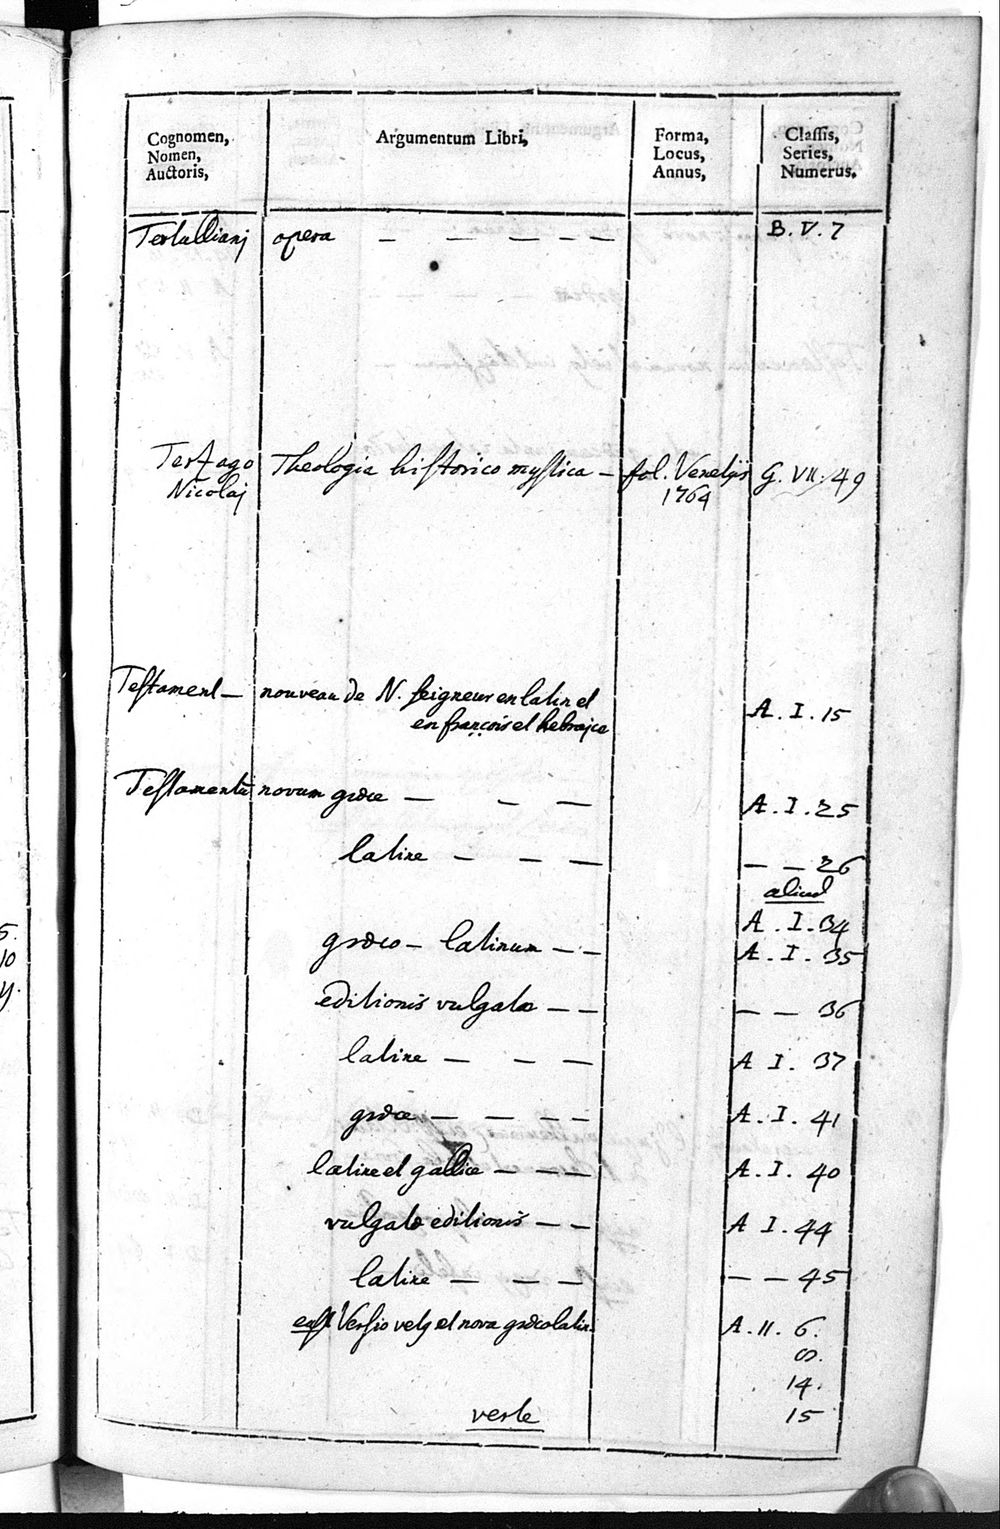 Cognomen, Nomen, Auctoris, Argumentum Libri, Forma, Locus, Annus, Classis, Series, Numerus.
Tertulliani opera — — — — — B. V. 7
Terzago Theologia historico mystica — fol. Venetijs G. VII. 49
Nicolaj 1764
Testament — nouveau de N. seigneur en latin et
en françois et hebraice A. I. 15
Testamentū novum græce — — — A. I. 25
latine — — — — — 26
aliud
A. I. 34
græco — latinum — — A. I. 35
editionis vulgatæ — — — — 36
latine — — — A I. 37
græce — — — — A. I. 41
latine et gallice — — — A. I. 40
vulgatæ editionis — — A I. 44
latine — — — — — 45
Versio vets et nova græcolatin. A. II. 6.
8.
14.
verte 15
5.
10